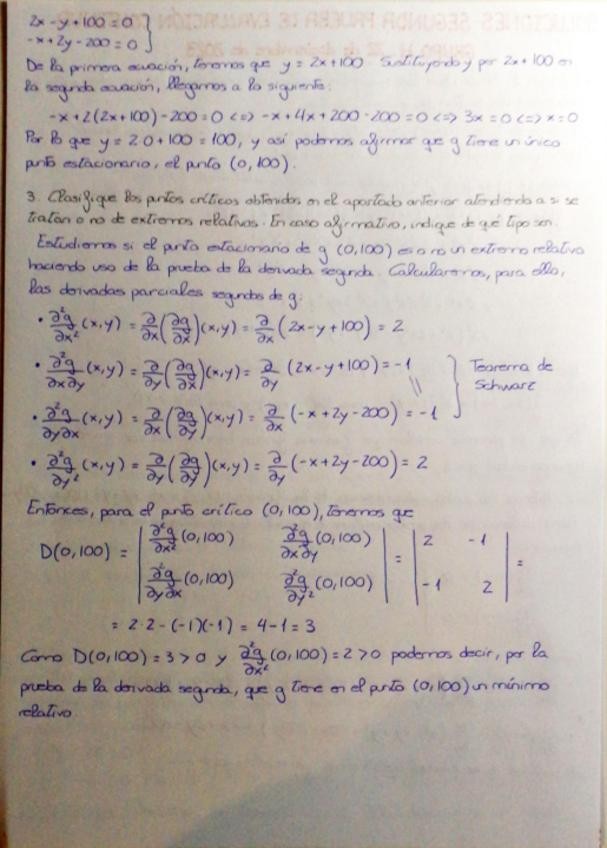 2x-y+100=0 }
-x+2y-200=0 }
De la primera ecuación, tenemos que y = 2x+100. Sustituyendo y por 2x+100 en
la segunda ecuación, llegamos a lo siguiente:
-x+2(2x+100)-200=0 <=> -x+4x+200-200=0 <=> 3x=0 <=> x=0
Por lo que y=2·0+100=100, y así podemos afirmar que g tiene un único
punto estacionario, el punto (0,100).
3. Clasifique los puntos críticos obtenidos en el apartado anterior atendiendo a si se
tratan o no de extremos relativos. En caso afirmativo, indique de qué tipo son.
Estudiemos si el punto estacionario de g (0,100) es o no un extremo relativo
haciendo uso de la prueba de la derivada segunda. Calcularemos, para ello,
las derivadas parciales segundas de g:
• ∂²g/∂x² (x,y) = ∂/∂x (∂g/∂x)(x,y) = ∂/∂x (2x-y+100) = 2
• ∂²g/∂x∂y (x,y) = ∂/∂y (∂g/∂x)(x,y) = ∂/∂y (2x-y+100) = -1 } Teorema de
= Schwarz
• ∂²g/∂y∂x (x,y) = ∂/∂x (∂g/∂y)(x,y) = ∂/∂x (-x+2y-200) = -1
• ∂²g/∂y² (x,y) = ∂/∂y (∂g/∂y)(x,y) = ∂/∂y (-x+2y-200) = 2
Entonces, para el punto crítico (0,100), tenemos que
D(0,100) = | ∂²g/∂x² (0,100) ∂²g/∂x∂y (0,100) | = | 2 -1 | =
| ∂²g/∂y∂x (0,100) ∂²g/∂y² (0,100) | | -1 2 |
= 2·2-(-1)(-1) = 4-1 = 3
Como D(0,100)=3>0 y ∂²g/∂x² (0,100)=2>0 podemos decir, por la
prueba de la derivada segunda, que g tiene en el punto (0,100) un mínimo
relativo.